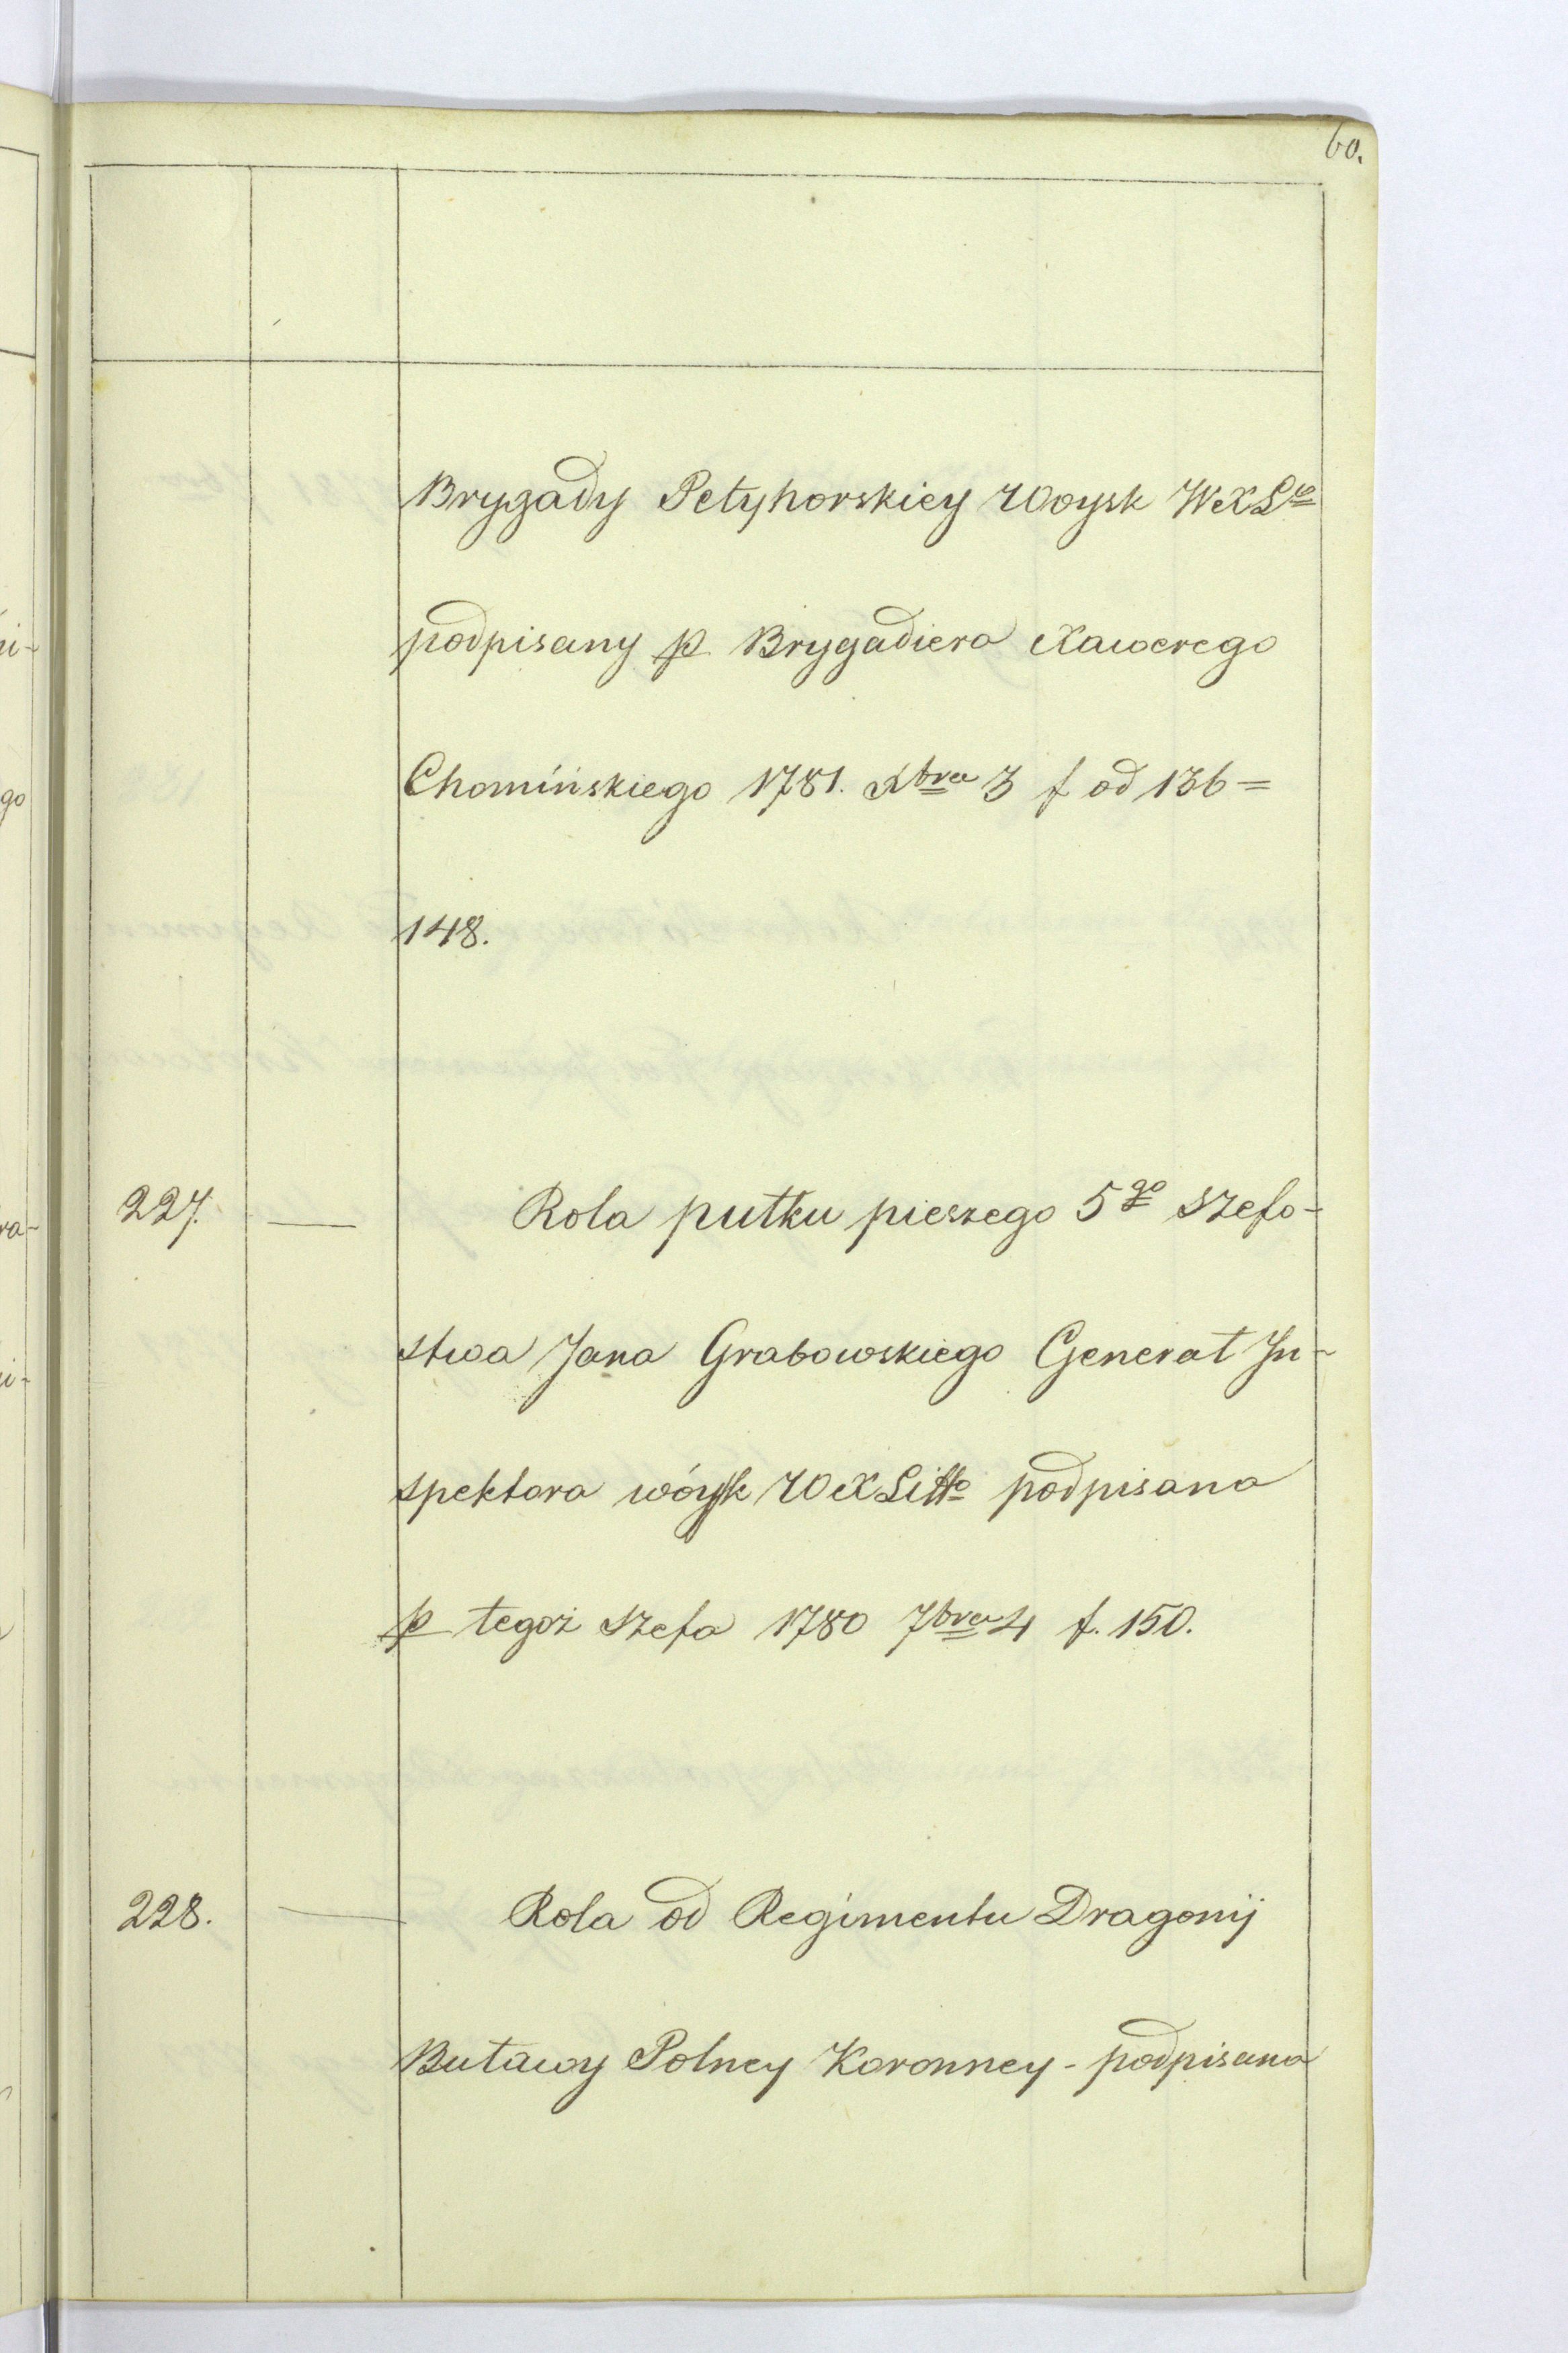 60.
Brygady Petyhorskiey Woysk WXL<sup>go</sup>
podpisany p Brygadiera Xawerego
Chomińskiego 1781. Xbra 3 f od 136=
148.
227. — Rola pułku pieszego 5<sup>go</sup> Szefo-
stwa Jana Grabowskiego Generał In-
spektora wóysk WXLitto podpisana
p tegoż Szefa 1780 7bra 4 f. 150.
228. — Rola od Regimentu Dragonij
Buławy Polney Koronney - podpisana